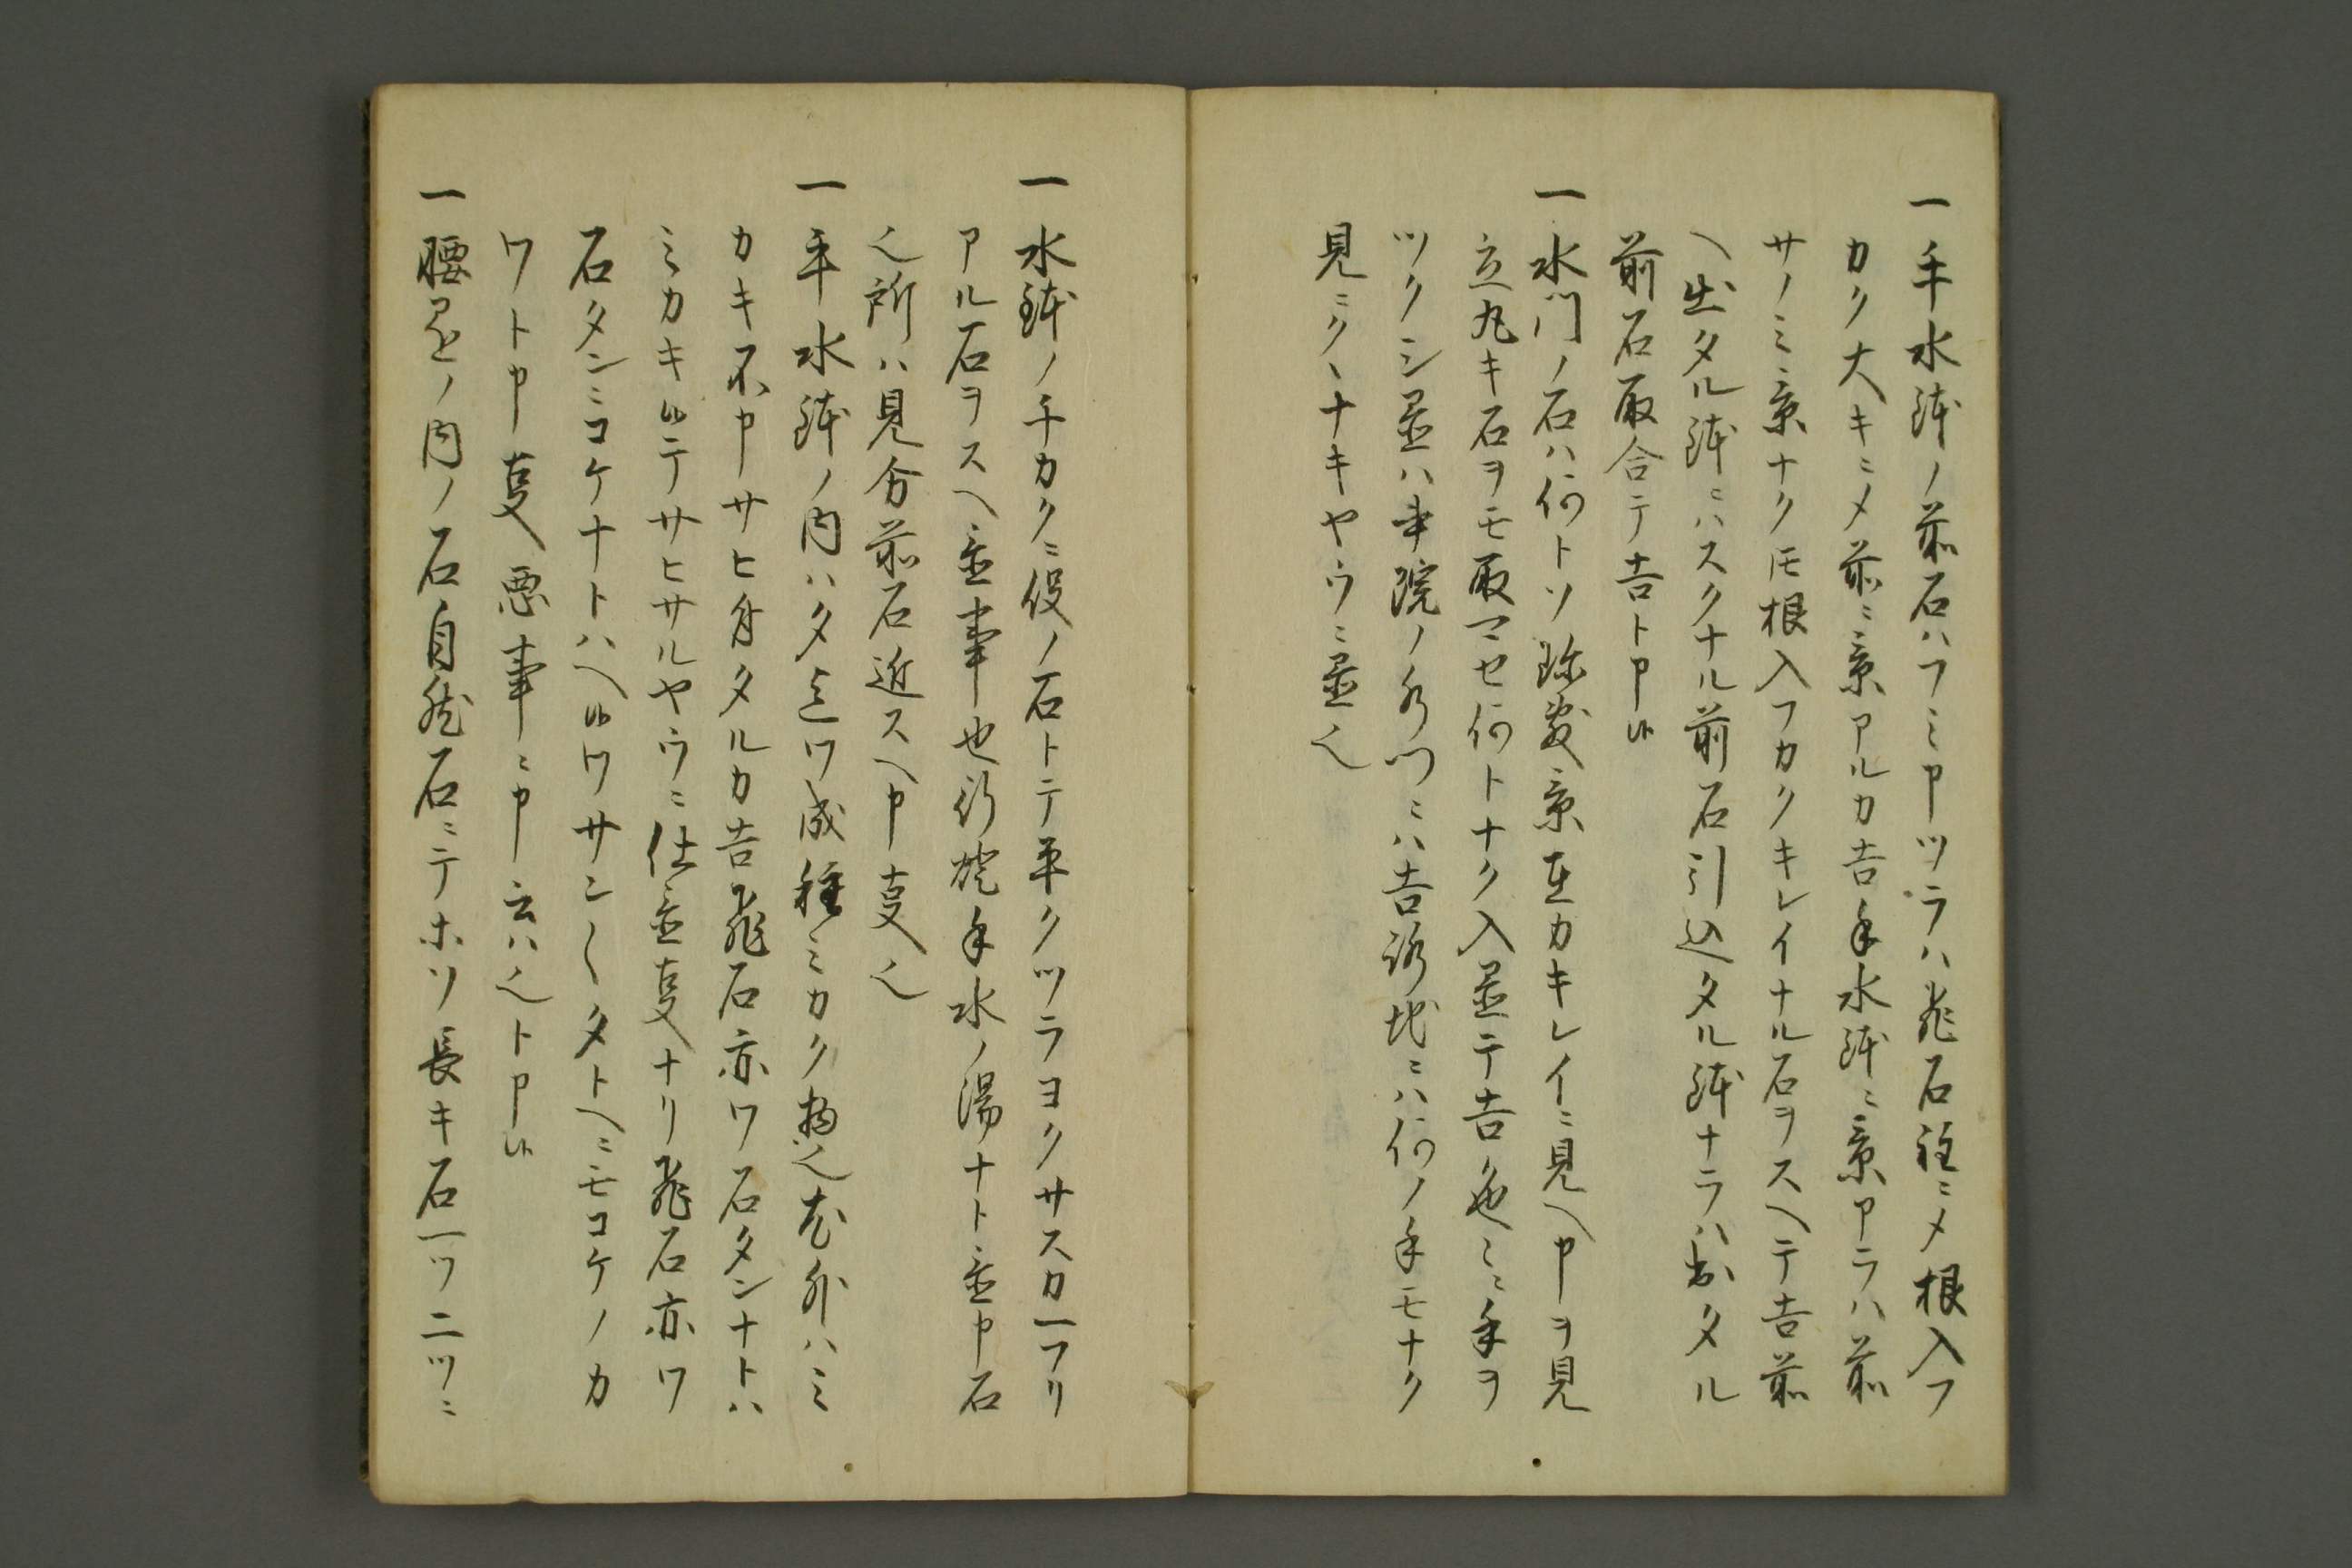 一手水鉢ノ前石ハフミ申ツラハ飛石程ニメ根入フ
カク大キニメ前ニ景アルカ吉手水鉢ニ景アラハ前
サノミ景ナク𪜈根入フカクキレイナル石ヲスヘテ吉前
ヘ出タル鉢ニハスクナル前石引込タル鉢ナラハ出タル
前石取合テ吉ト申候
一水門ノ石ハ何トソ珎敷景在カキレイニ見ヘ申ヲ見
立丸キ石ヲモ取マセ何トナク入置テ吉也ミ手ヲ
ツクシ置ハ書院ノ水門ニハ吉路地ニハ何ノ手モナク
見ニクヽナキヤウニ置也
一水鉢ノ千カクニ役ノ石トテ平クツラヨクサスカ一フリ
アル石ヲスヘ置事也行燈手水ノ湯ナト置申石
也所ハ見合前石近スヘ申事也
一手水鉢ノ内ハタ迄ワ成程ミカク物也尤外ハミ
カキ不申サヒ付タルカ吉飛石亦ワ石タンナトハ
ミカキ候テサヒサルヤウニ仕置事ナリ飛石亦ワ
石タンニコケナトハヘ候ワサン〱タトヘニモコケノカ
ワト申事悪事ニ申云ハ也ト申候
一腰置ノ内ノ石自然石ニテホソ長キ石一ツ二ツニ